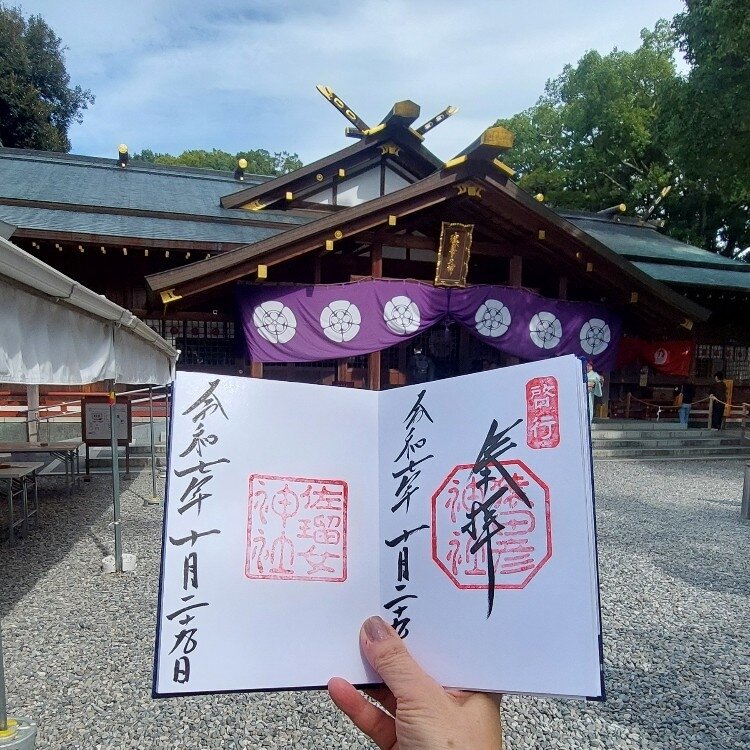 啓行
奉拝
猿田彦
神社
令和七年十月二十九
佐瑠女
神社
令和七年十月二十九日